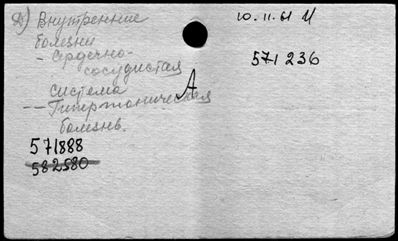 Внутренние
болезни
- Сердечно-
сосудистая
система
-- Гипертоническая
болезнь.
А
571888
582580
10.11.61 И
571 236